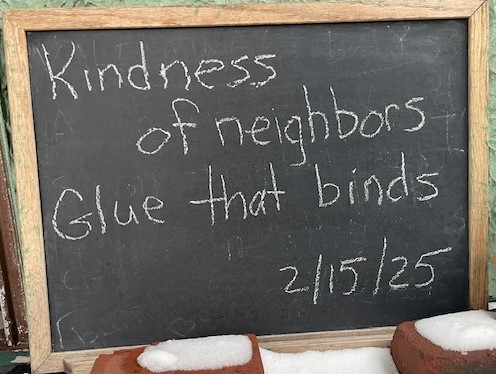 Kindness
of neighbors
Glue that binds
2/15/25